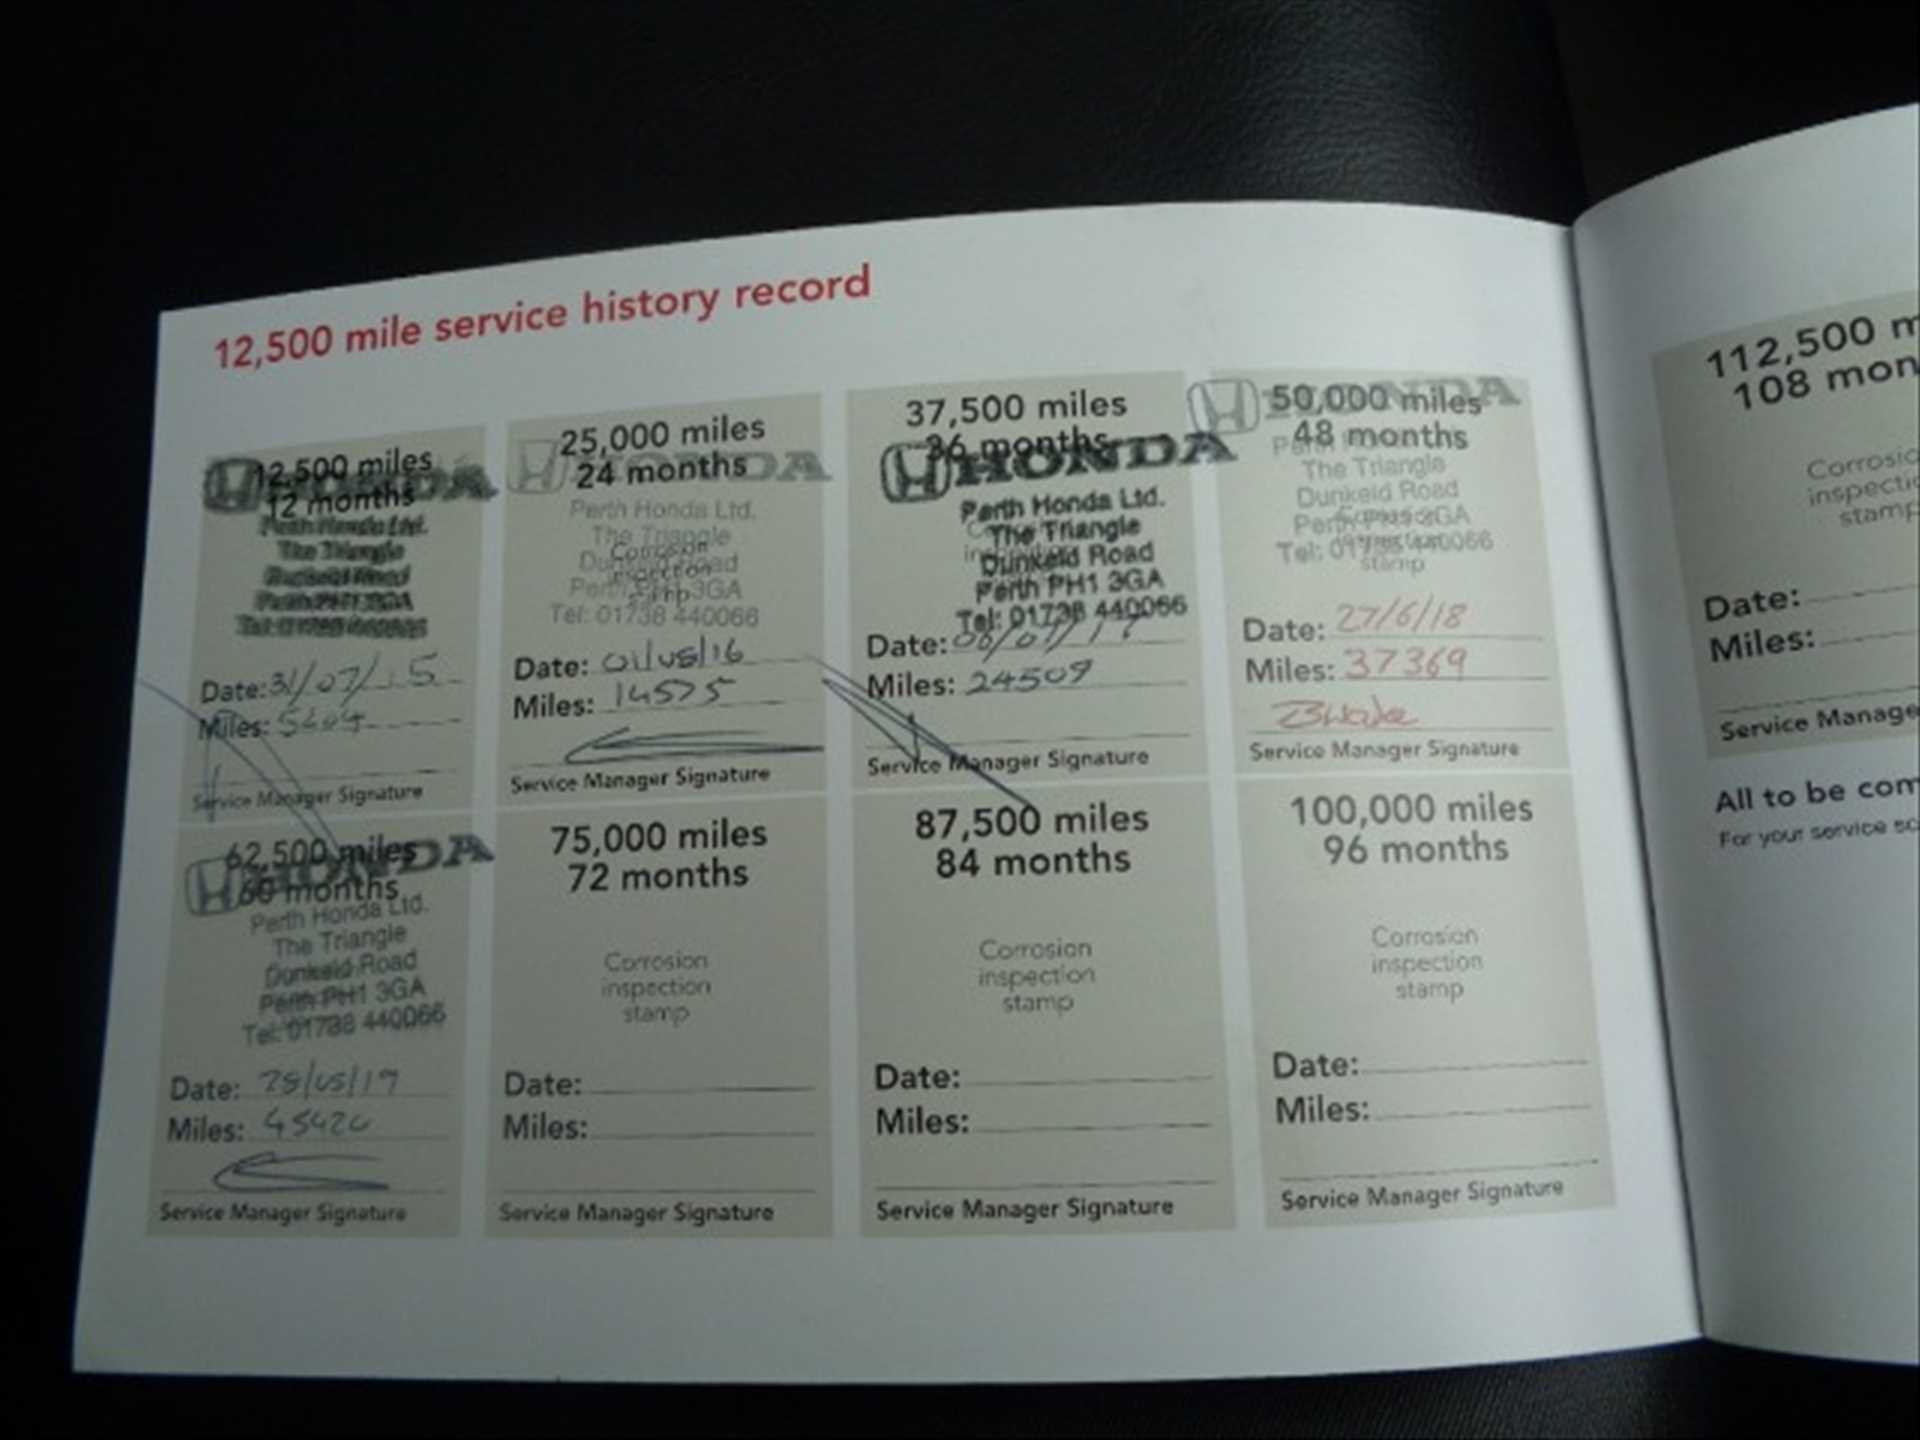 12,500 mile service history record
12,500 miles
12 months
HONDA
Perth Honda Ltd.
The Triangle
Dunkeld Road
Perth PH1 3GA
Tel: 01738 440066
Date: 31/07/15
Miles:
Service Manager Signature
25,000 miles
24 months
HONDA
Perth Honda Ltd.
The Triangle
Dunkeld Road
Perth PH1 3GA
Tel: 01738 440066
Corrosion
inspection
stamp
Date: 01/08/16
Miles: 14575
Service Manager Signature
37,500 miles
36 months
HONDA
Perth Honda Ltd.
The Triangle
Dunkeld Road
Perth PH1 3GA
Tel: 01738 440066
Date: 06/07/17
Miles: 24509
Service Manager Signature
50,000 miles
48 months
HONDA
Perth Honda Ltd.
The Triangle
Dunkeld Road
Perth PH1 3GA
Tel: 01738 440066
Corrosion
inspection
stamp
Date: 27/6/18
Miles: 37369
Service Manager Signature
62,500 miles
60 months
HONDA
Perth Honda Ltd.
The Triangle
Dunkeld Road
Perth PH1 3GA
Tel: 01738 440066
Date: 28/05/19
Miles: 45420
Service Manager Signature
75,000 miles
72 months
Corrosion
inspection
stamp
Date:
Miles:
Service Manager Signature
87,500 miles
84 months
Corrosion
inspection
stamp
Date:
Miles:
Service Manager Signature
100,000 miles
96 months
Corrosion
inspection
stamp
Date:
Miles:
Service Manager Signature
112,500 m
108 mon
Corrosio
inspectio
stamp
Date:
Miles:
Service Manage
All to be com
For your service sc